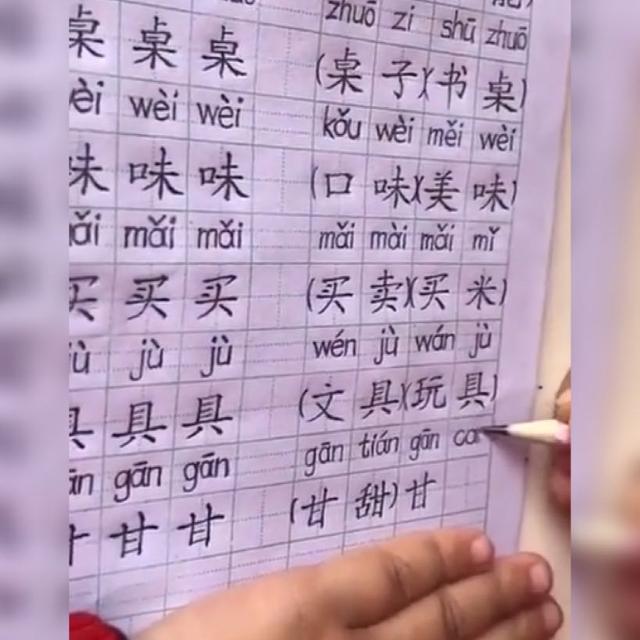 zhuō zi shū zhuō
桌 桌 桌 (桌 子)(书 桌)
wèi wèi kǒu wèi měi wèi
味 味 味 (口 味)(美 味)
mǎi mǎi mǎi mài mǎi mǐ
买 买 买 (买 卖)(买 米)
jù jù wén jù wán jù
具 具 具 (文 具)(玩 具)
gān gān gān tián gān ca
甘 甘 (甘 甜)甘